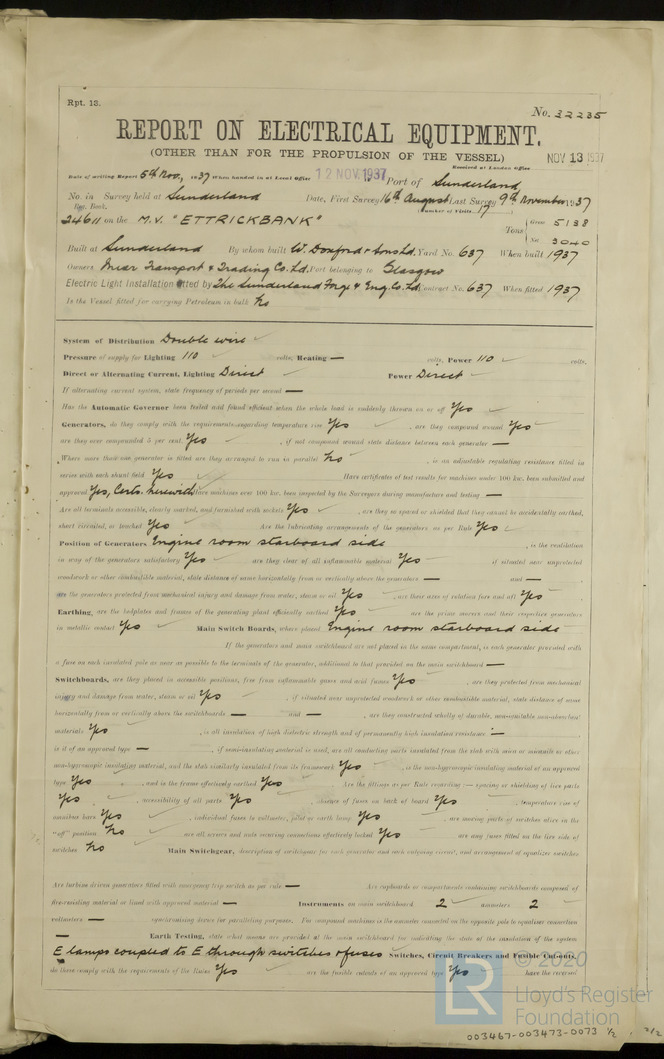 Rpt. 13.
No. 32235
REPORT ON ELECTRICAL EQUIPMENT.
(OTHER THAN FOR THE PROPULSION OF THE VESSEL)
Received at London Office NOV 13 1937
Date of writing Report 5th Nov, 1937 When handed in at Local Office 12 NOV 1937 Port of Sunderland
No. in Survey held at Sunderland Date, First Survey 16th August Last Survey 9th November 1937
Reg. Book. (Number of Visits 17)
24611 on the M.V. "ETTRICKBANK" Tons Gross 5138
Net 3040
Built at Sunderland By whom built W. Doxford & Sons Ld. Yard No. 637 When built 1937
Owners Transport & Trading Co. Ld. Port belonging to Glasgow
Electric Light Installation fitted by The Sunderland Forge & Eng. Co. Ld. Contract No. 637 When fitted 1937
Is the Vessel fitted for carrying Petroleum in bulk No
System of Distribution Double wire
Pressure of supply for Lighting 110 volts, Heating — volts, Power 110 volts.
Direct or Alternating Current, Lighting Direct Power Direct
If alternating current system, state frequency of periods per second —
Has the Automatic Governor been tested and found efficient when the whole load is suddenly thrown on or off Yes
Generators, do they comply with the requirements regarding temperature rise Yes, are they compound wound Yes
are they over compounded 5 per cent. Yes, if not compound wound state distance between each generator —
Where more than one generator is fitted are they arranged to run in parallel No, is an adjustable regulating resistance fitted in
series with each shunt field Yes Have certificates of test results for machines under 100 kw. been submitted and
approved Yes, Certs. herewith Have machines over 100 kw. been inspected by the Surveyors during manufacture and testing —
Are all terminals accessible, clearly marked, and furnished with sockets Yes, are they so spaced or shielded that they cannot be accidentally earthed,
short circuited, or touched Yes Are the lubricating arrangements of the generators as per Rule Yes
Position of Generators Engine room starboard side, is the ventilation
in way of the generators satisfactory Yes are they clear of all inflammable material Yes if situated near unprotected
woodwork or other combustible material, state distance of same horizontally from or vertically above the generators — and —
are the generators protected from mechanical injury and damage from water, steam or oil Yes, are their axes of rotation fore and aft Yes
Earthing, are the bedplates and frames of the generating plant efficiently earthed Yes are the prime movers and their respective generators
in metallic contact Yes Main Switch Boards, where placed Engine room starboard side
If the generators and main switchboard are not placed in the same compartment, is each generator provided with
a fuse on each insulated pole as near as possible to the terminals of the generator, additional to that provided on the main switchboard —
Switchboards, are they placed in accessible positions, free from inflammable gases and acid fumes Yes, are they protected from mechanical
injury and damage from water, steam or oil Yes, if situated near unprotected woodwork or other combustible material, state distance of same
horizontally from or vertically above the switchboards — and —, are they constructed wholly of durable, non-ignitable non-absorbent
materials Yes, is all insulation of high dielectric strength and of permanently high insulation resistance —
is it of an approved type —, if semi-insulating material is used, are all conducting parts insulated from the slab with mica or micanite or other
non-hygroscopic insulating material, and the slab similarly insulated from its framework Yes, is the non-hygroscopic insulating material of an approved
type Yes, and is the frame effectively earthed Yes Are the fittings as per Rule regarding:— spacing or shielding of live parts
Yes, accessibility of all parts Yes, absence of fuses on back of board Yes, temperature rise of
omnibus bars Yes, individual fuses to voltmeter, pilot or earth lamp Yes, are moving parts of switches alive in the
"off" position No are all screws and nuts securing connections effectively locked Yes are any fuses fitted on the live side of
switches No Main Switchgear, description of switchgear for each generator and each outgoing circuit, and arrangement of equalizer switches
Are turbine driven generators fitted with emergency trip switch as per rule — Are cupboards or compartments containing switchboards composed of
fire-resisting material or lined with approved material — Instruments on main switchboard 2 ammeters 2
voltmeters — synchronising device for paralleling purposes. For compound machines is the ammeter connected on the opposite pole to equaliser connection
— Earth Testing, state what means are provided at the main switchboard for indicating the state of the insulation of the system
E lamps coupled to E through switches & fuses Switches, Circuit Breakers and Fusible Cutouts,
do these comply with the requirements of the Rules Yes are the fusible cutouts of an approved type Yes have the reversed
© 2020
LR
Lloyd's Register
Foundation
003467-003473-0073 1/2
2/2